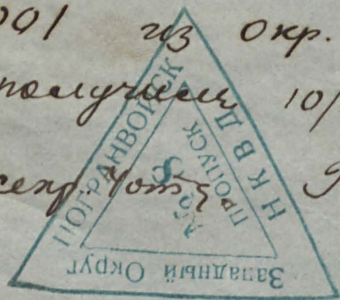 001 из окр.
получили 10/
секр.
ПОГРАНВОЙСК
НКВД
Западный Округ
ПРОПУСК
№ 8